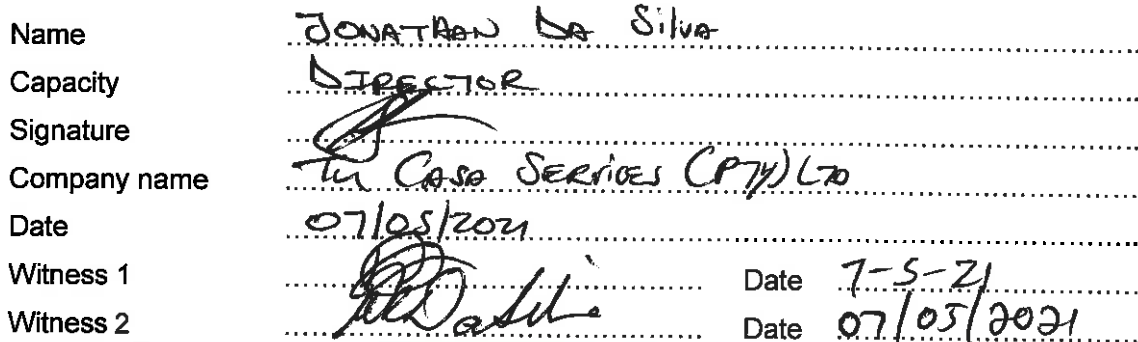 Name JONATHAN DA Silva
Capacity DIRECTOR
Signature
Company name Tu CASA SERVICES (PTY) LTD
Date 07/05/2021
Witness 1 Date 7-5-21
Witness 2 Da Silva Date 07/05/2021